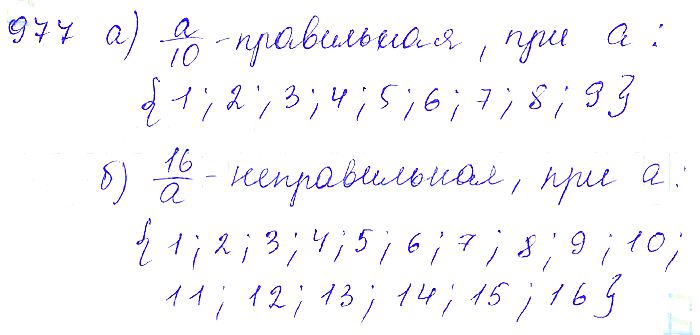 977 а) a/10 - правильная, при a:
{1; 2; 3; 4; 5; 6; 7; 8; 9}
б) 16/a - неправильная, при a:
{1; 2; 3; 4; 5; 6; 7; 8; 9; 10;
11; 12; 13; 14; 15; 16}